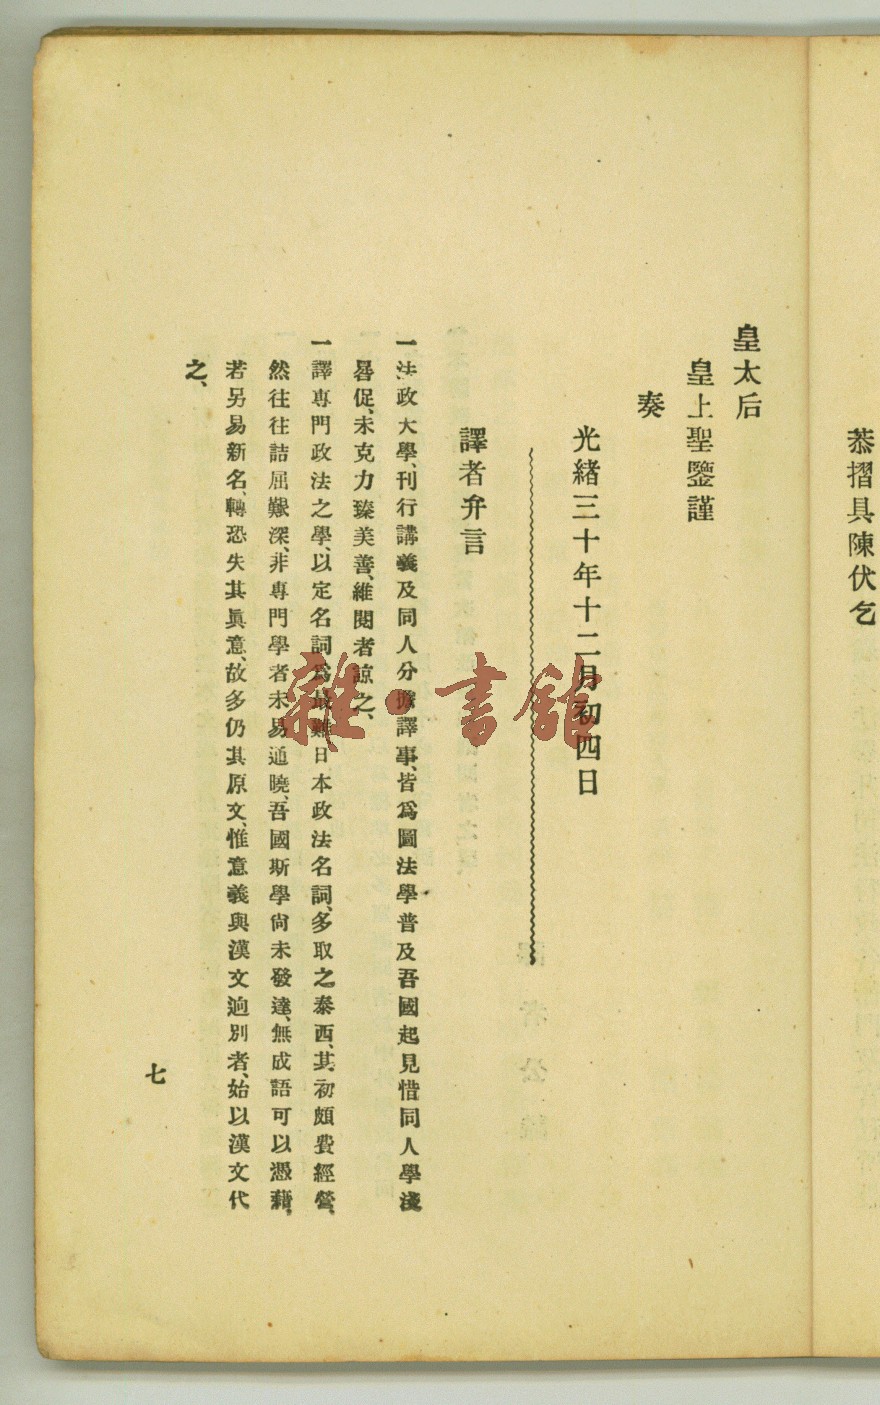 恭摺具陳伏乞
皇太后
皇上聖鑒謹
奏
光緒三十年十二月初四日
譯者弁言
一法政大學、刊行講義及同人分擔譯事、皆爲圖法學普及吾國起見惜同人學淺
晷促、未克力臻美善、維閱者諒之、
一譯專門政法之學、以定名詞爲最難日本政法名詞、多取之泰西、其初頗費經營、
然往往詰屈艱深、非專門學者未易通曉、吾國斯學尙未發達、無成語可以憑藉、
若另易新名、轉恐失其眞意、故多仍其原文、惟意義與漢文逈別者、始以漢文代
之、
七
雜·書館